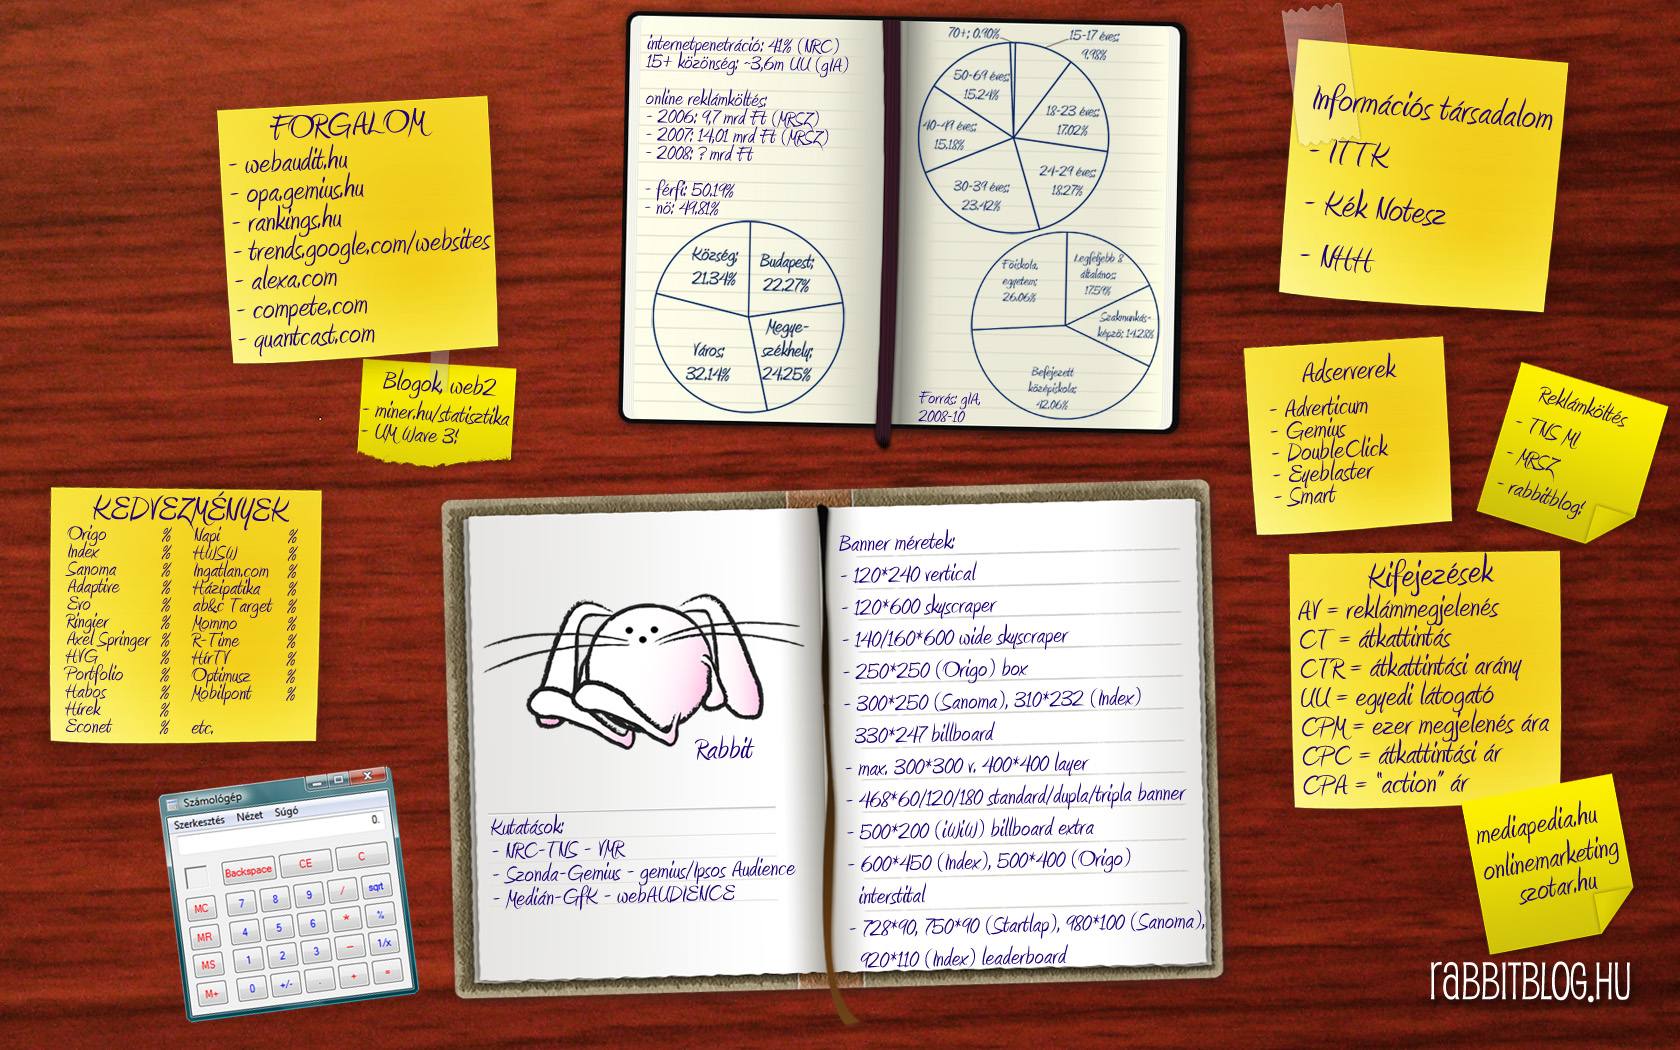 FORGALOM
- webaudit.hu
- opa.gemius.hu
- rankings.hu
- trends.google.com/websites
- alexa.com
- compete.com
- quantcast.com
Blogok, web2
- miner.hu/statisztika
- UM Wave 3!
KEDVEZMÉNYEK
Origo % Napi %
Index % HWSW %
Sanoma % Ingatlan.com %
Adaptive % Házipatika %
Evo % ab&c Target %
Ringier % Mommo %
Axel Springer % R-Time %
HVG % HírTV %
Portfolio % Optimusz %
Habos % Mobilpont %
Hírek %
Econet % etc.
Számológép
Szerkesztés Nézet Súgó
0.
Backspace CE C
MC 7 8 9 / sqrt
MR 4 5 6 * %
MS 1 2 3 - 1/x
M+ 0 +/- . + =
internetpenetráció: 41% (NRC)
15+ közönség: ~3,6m UU (gIA)
online reklámköltés:
- 2006: 9,7 mrd Ft (MRSZ)
- 2007: 14,01 mrd Ft (MRSZ)
- 2008: ? mrd Ft
- férfi: 50,19%
- nö: 49,81%
Község; 21.34%
Budapest; 22.27%
Város; 32.14%
Megye-
székhely;
24.25%
70+; 0.90%
15-17 éves;
9.98%
50-69 éves;
15.24%
18-23 éves;
17.02%
40-49 éves;
15.18%
24-29 éves;
18.27%
30-39 éves;
23.42%
Föiskola,
egyetem;
26.06%
Legfeljebb 8
általános;
17.59%
Szakmunkás-
képzö; 14.28%
Befejezett
középiskola;
42.06%
Forrás: gIA,
2008-10
Rabbit
Kutatások:
- NRC-TNS - VMR
- Szonda-Gemius - gemius/Ipsos Audience
- Medián-GfK - webAUDIENCE
Banner méretek:
- 120*240 vertical
- 120*600 skyscraper
- 140/160*600 wide skyscraper
- 250*250 (Origo) box
- 300*250 (Sanoma), 310*232 (Index)
330*247 billboard
- max. 300*300 v. 400*400 layer
- 468*60/120/180 standard/dupla/tripla banner
- 500*200 (iWiW) billboard extra
- 600*450 (Index), 500*400 (Origo)
interstital
- 728*90, 750*90 (Startlap), 980*100 (Sanoma),
920*110 (Index) leaderboard
Információs társadalom
- ITTK
- Kék Notesz
- NHH
Adserverek
- Adverticum
- Gemius
- DoubleClick
- Eyeblaster
- Smart
Reklámköltés
- TNS MI
- MRSZ
- rabbitblog!
Kifejezések
AV = reklámmegjelenés
CT = átkattintás
CTR = átkattintási arány
UU = egyedi látogató
CPM = ezer megjelenés ára
CPC = átkattintási ár
CPA = "action" ár
mediapedia.hu
onlinemarketing
szotar.hu
RABBITBLOG.HU